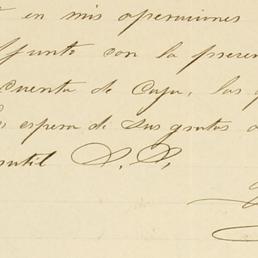 en mis operaciones
Adjunto con la presen
Cuenta de Caja, las q
espera de sus gratas o
util S. S.